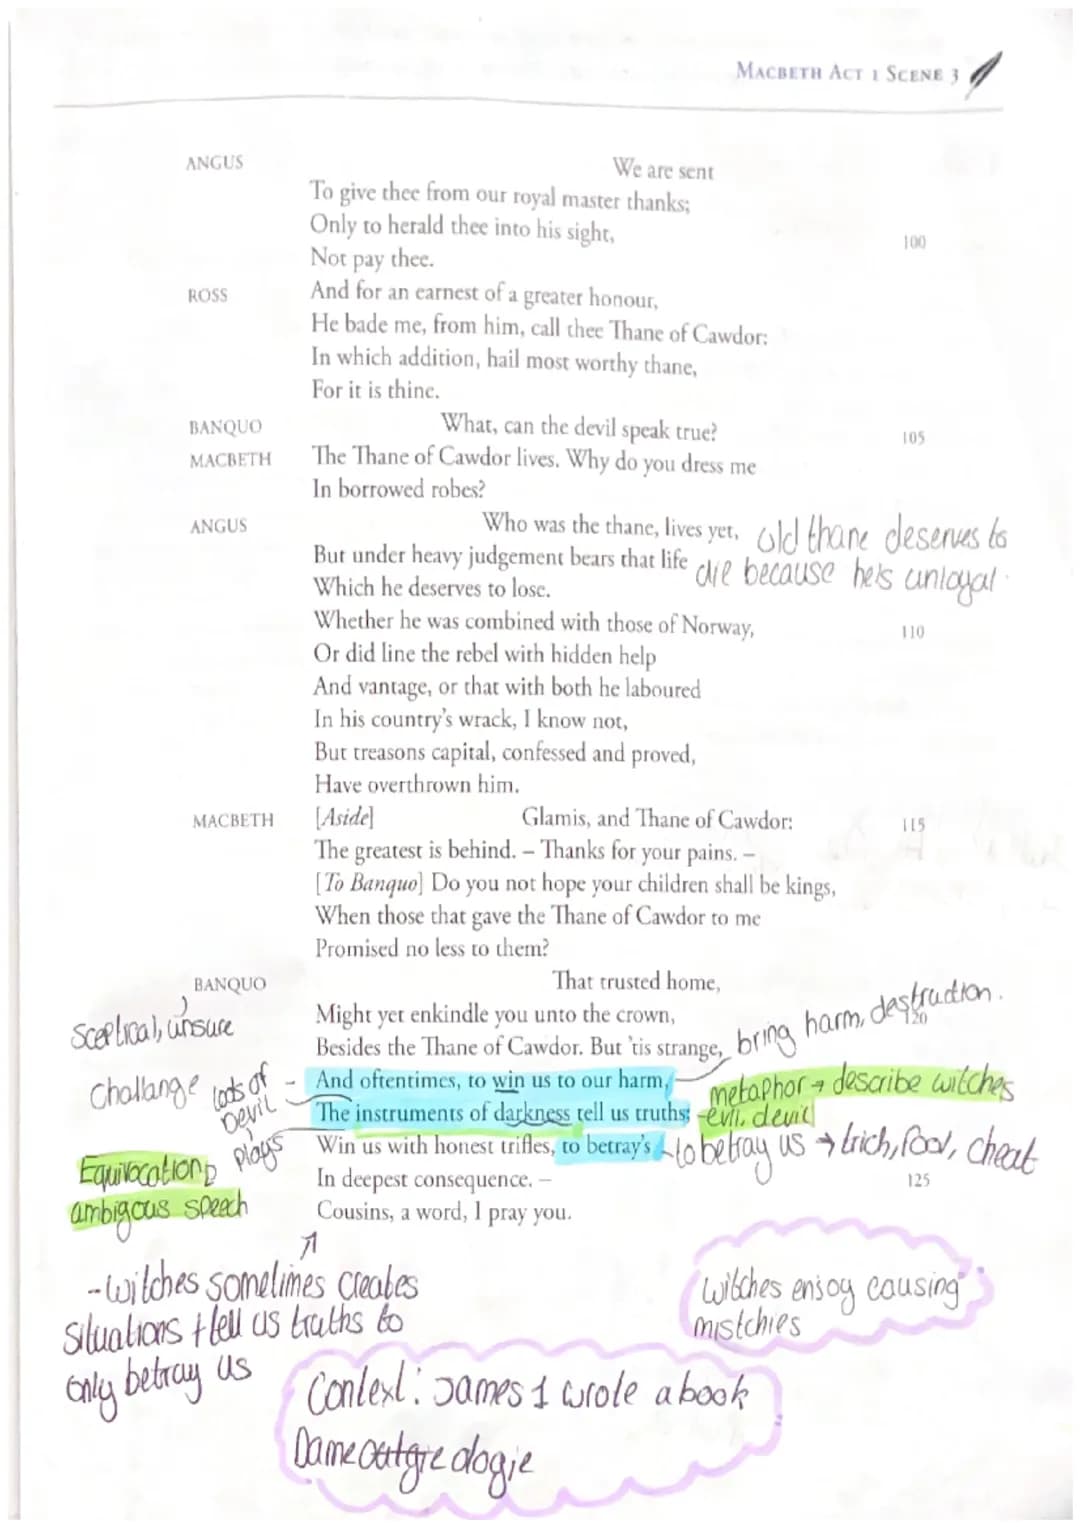 MACBETH ACT 1 SCENE 3
ANGUS We are sent
To give thee from our royal master thanks;
Only to herald thee into his sight, 100
Not pay thee.
ROSS And for an earnest of a greater honour,
He bade me, from him, call thee Thane of Cawdor:
In which addition, hail most worthy thane,
For it is thine.
BANQUO What, can the devil speak true? 105
MACBETH The Thane of Cawdor lives. Why do you dress me
In borrowed robes?
ANGUS Who was the thane, lives yet, old thane deserves to
But under heavy judgement bears that life die because he's unloyal.
Which he deserves to lose.
Whether he was combined with those of Norway, 110
Or did line the rebel with hidden help
And vantage, or that with both he laboured
In his country's wrack, I know not,
But treasons capital, confessed and proved,
Have overthrown him.
MACBETH [Aside] Glamis, and Thane of Cawdor: 115
The greatest is behind. – Thanks for your pains. –
[To Banquo] Do you not hope your children shall be kings,
When those that gave the Thane of Cawdor to me
Promised no less to them?
BANQUO That trusted home,
Sceptical, unsure
Might yet enkindle you unto the crown, 120
Besides the Thane of Cawdor. But 'tis strange, bring harm, destruction.
Challange
And oftentimes, to win us to our harm, metaphor → describe witches
lots of Devil plays
The instruments of darkness tell us truths; -evil, devil
Win us with honest trifles, to betray's to betray us → trich, fool, cheat
Equivocation
ambigous speech
In deepest consequence. – 125
Cousins, a word, I pray you.
- witches sometimes creates
situations + tell us truths to
only betray us
witches enjoy causing
mistchies
Context: James 1 wrote a book